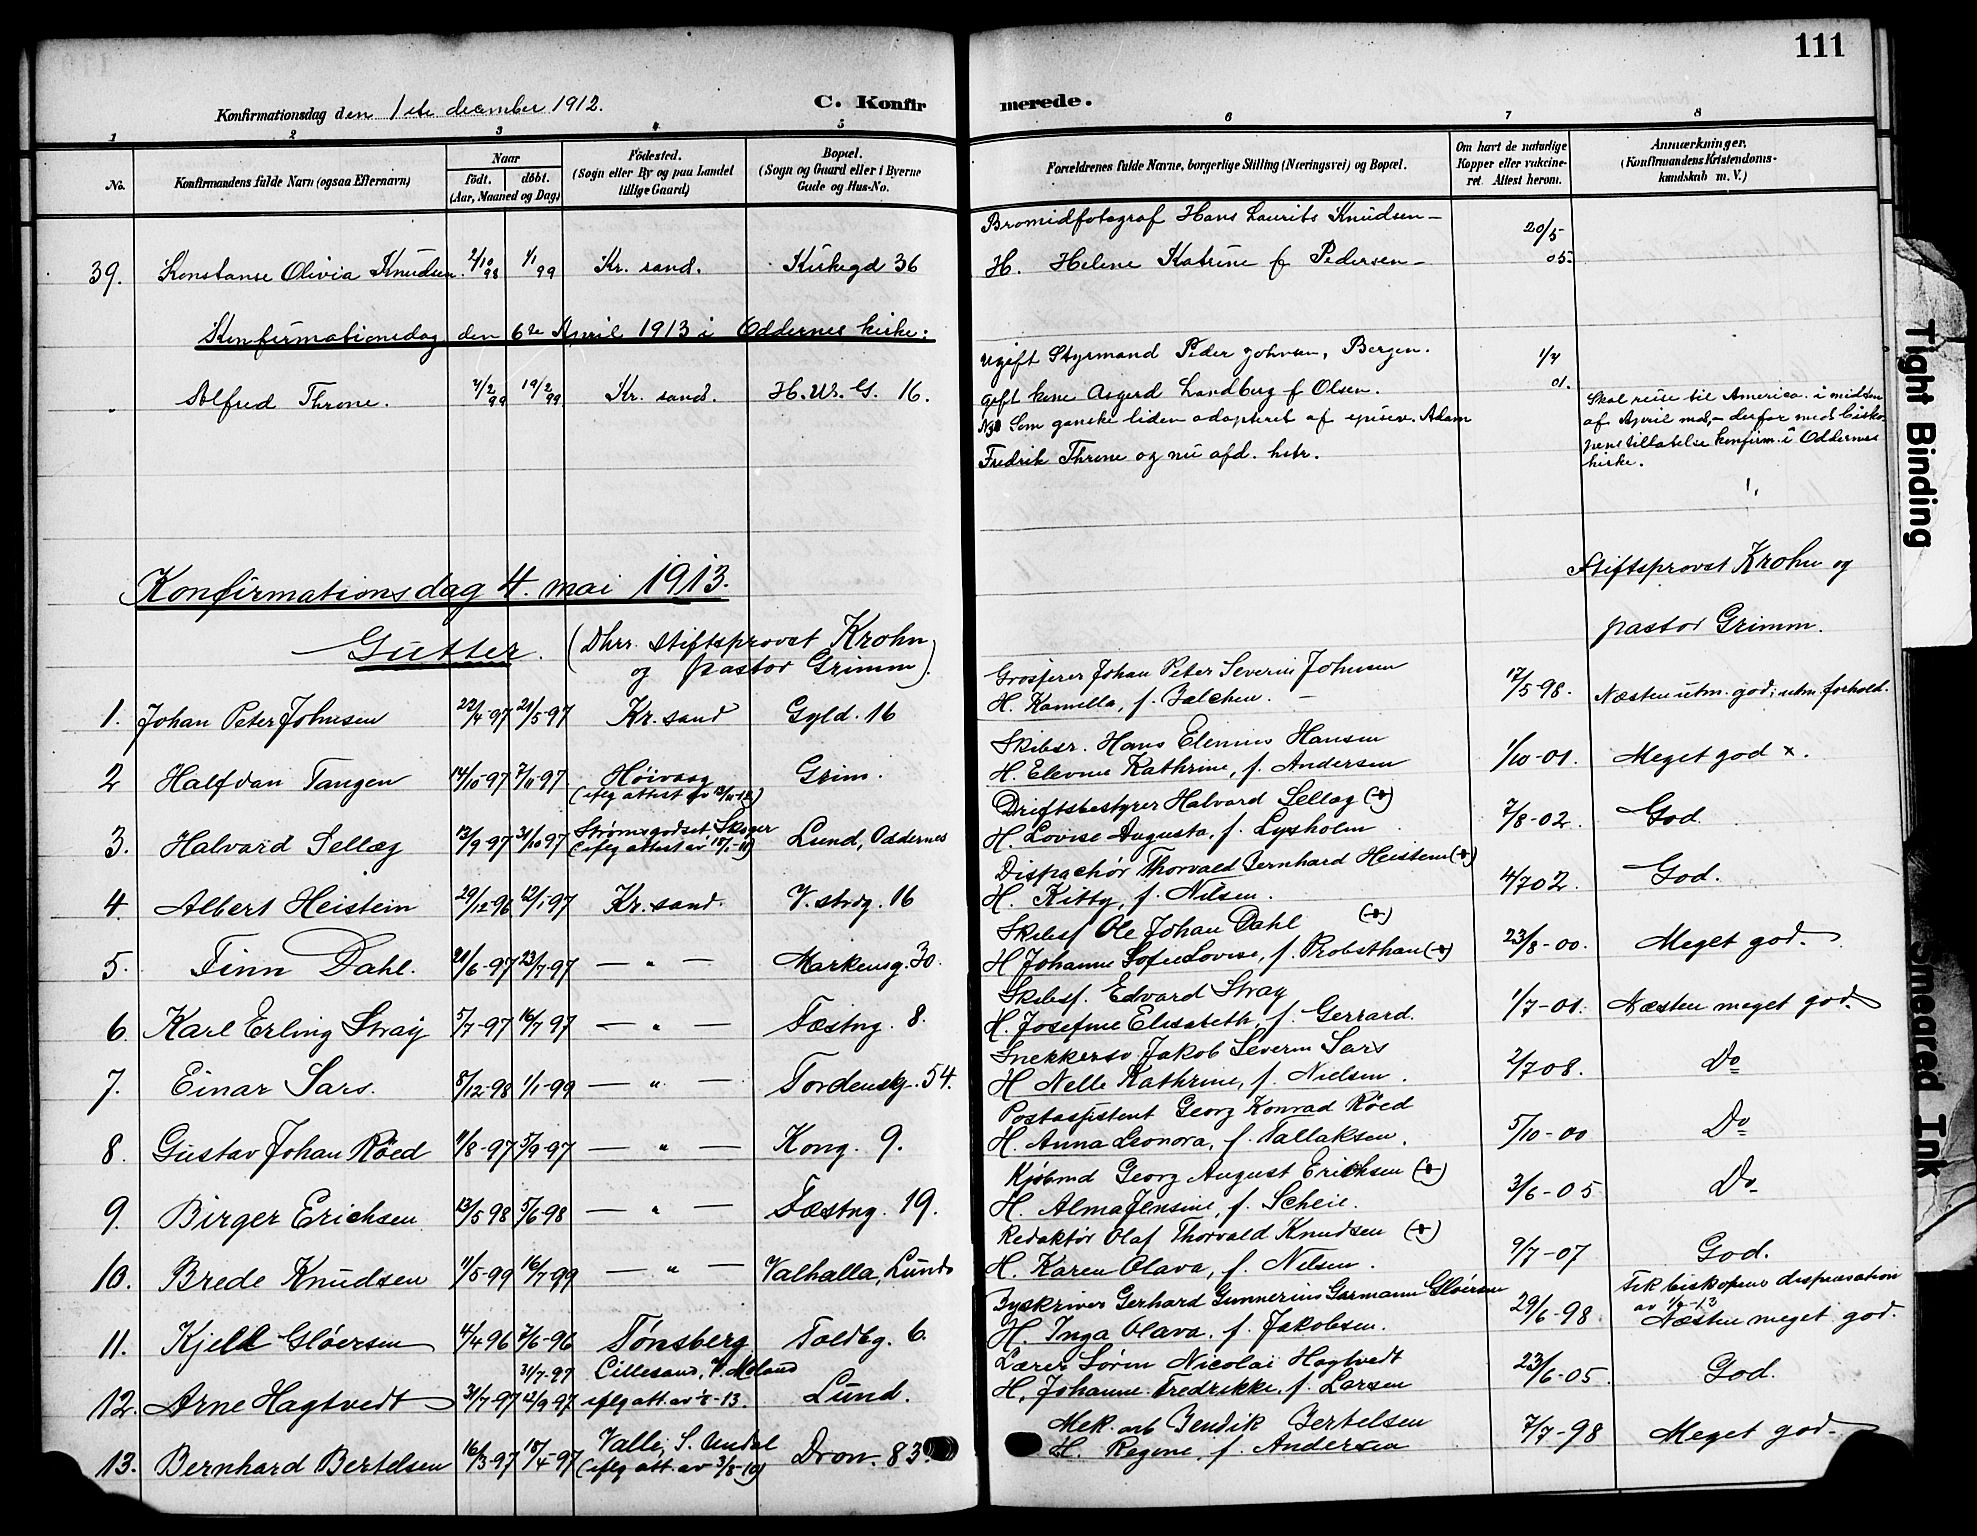 111
Konfirmationsdag den 1ste december 1912.
C. Konfirmerede.
1 2 3 4 5 6 7 8
No.
Konfirmandens fulde Navn (ogsaa Efternavn)
Naar
født. døbt.
(Aar, Maaned og Dag)
Fødested.
(Sogn eller By og paa Landet
tillige Gaard)
Bopæl.
(Sogn og Gaard eller i Byerne
Gade og Hus-No.
Forældrenes fulde Navne, borgerlige Stilling (Næringsvei) og Bopæl.
Om havt de naturlige
Kopper eller vaccine-
ret. Attest herom.
Anmærkninger,
(Konfirmandens Kristendoms-
kundskab m. V.)
Bromidfotograf Hans Laurits Knudsen – 20/5
39. Konstanse Olivia Knudsen 2/10 98 1/1 99 Kr. sand. Kirkegd 36 H. Helene Katrine f Pedersen – 05
Konfirmationsdag den 6te April 1913 i Oddernes kirke:
Ugift Styrmand Peder Johnsen, Bergen.
Alfred Throne. 19/2 99 Kr. sand. H. W. G. 16. gift kone Asgerd Landberg f Olsen. 01.
Som ganske liden adopteret af Adam
Fredrik Throne og nu afd. hstr.
Skal reise til America i midten
af April md, – derfor med bisko-
pens tilladelse konfirm. i Oddernes
kirke.
Konfirmationsdag 4. mai 1913.
Stiftsprovst Krohn og
pastor Grimm.
Gutter. (Dhrr. stiftsprovst Krohn
og pastor Grimm).
Grosserer Johan Peter Severin Johnsen
1. Johan Peter Johnsen 22/4-97 21/5-97 Kr. sand Gyld. 16 H. Kamilla, f. Balchen. 17/5-98. Næsten utm. god; utm. forhold.
Skibsr. Hans Elenius Hansen
2 Halfdan Tangen 14/10-97 7/11-97 Høivaag Grim. H. Elevine Kathrine, f. Andersen 1/10-01. Meget god x.
(iflg attest av 13/11-12)
Driftsbestyrer Halvard Sellæg (+)
3. Halvard Sellæg 13/9-97 31/10 97 Strømsgodset Skoger Lund, Oddernes H. Lovise Augusta, f. Lysholm 7/8-02. God.
Dispachør Thorvald Bernhard Heistein (+)
4 Albert Heistein 29/12-96 12/1-97 Kr. sand. V. strdg. 16 H. Kitty, f. Nilsen. 4/7 02. God.
Skibsf Ole Johan Dahl (+)
5. Finn Dahl. 20/6-97 23/7-97 — " — Markensg. 30. H Johanne Sofie Lovise, f. Probsthan (+) 23/8-00. Meget god.
Skibsf. Edvard Stray
6 Karl Erling Stray 5/7-97 16/7 97 — " — Fæstng. 8. H. Josefine Elisabeth, f. Gerrard. 1/7-01. Næsten meget god.
Snekkersv. Jakob Severin Sars
7. Einar Sars. 8/12-98 1/1-99 — " — Tordenskj. 54. H Nelle Kathrine, f. Nielsen. 2/7 08. Do
Postassistent Georg Konrad Røed
8. Gustav Johan Røed 11/8-97 5/9-97 — " — Kong. 9. H. Anna Leonora, f. Tallaksen. 5/10-00 Do
Kjøbmd Georg August Erichsen (+)
9. Birger Erichsen 13/5 98 5/6-98 — " — Fæstng. 19. H. Alma Jensine, f. Scheie. 3/6-05 Do
Redaktør Olaf Thorvald Knudsen (+)
10. Brede Knudsen 11/5-99 16/7-99 — " — Valhalla, Lund H. Karen Olava, f. Nilsen. 9/7-07 God.
Fik biskopens dispensation
Byskriver Gerhard Gunnerius Garmann Gløersen
11. Kjell Gløersen 4/4 96 7/6-96 Tønsberg Toldbg. 6. H. Inga Olava. f. Jakobsen. 29/6-98. Næsten meget god.
31/7-97 Lillesand, V. Moland Lærer Søren Nicolai Hagtvedt
12. Arne Hagtvedt 31/7-97 12/9-97 iflg att. av -13. Lund. H. Johanne Fredrikke, f. Larsen 23/6-05. God.
Mek. arb Bendik Bertelsen
13. Bernhard Bertelsen 16/3-97 18/4-97 Valle, S. Undal Dron. 83. H. Regine, f. Andersen 7/7-98 Meget god.
(iflg att. av 3/8-10)
Tight Binding
Smeared Ink